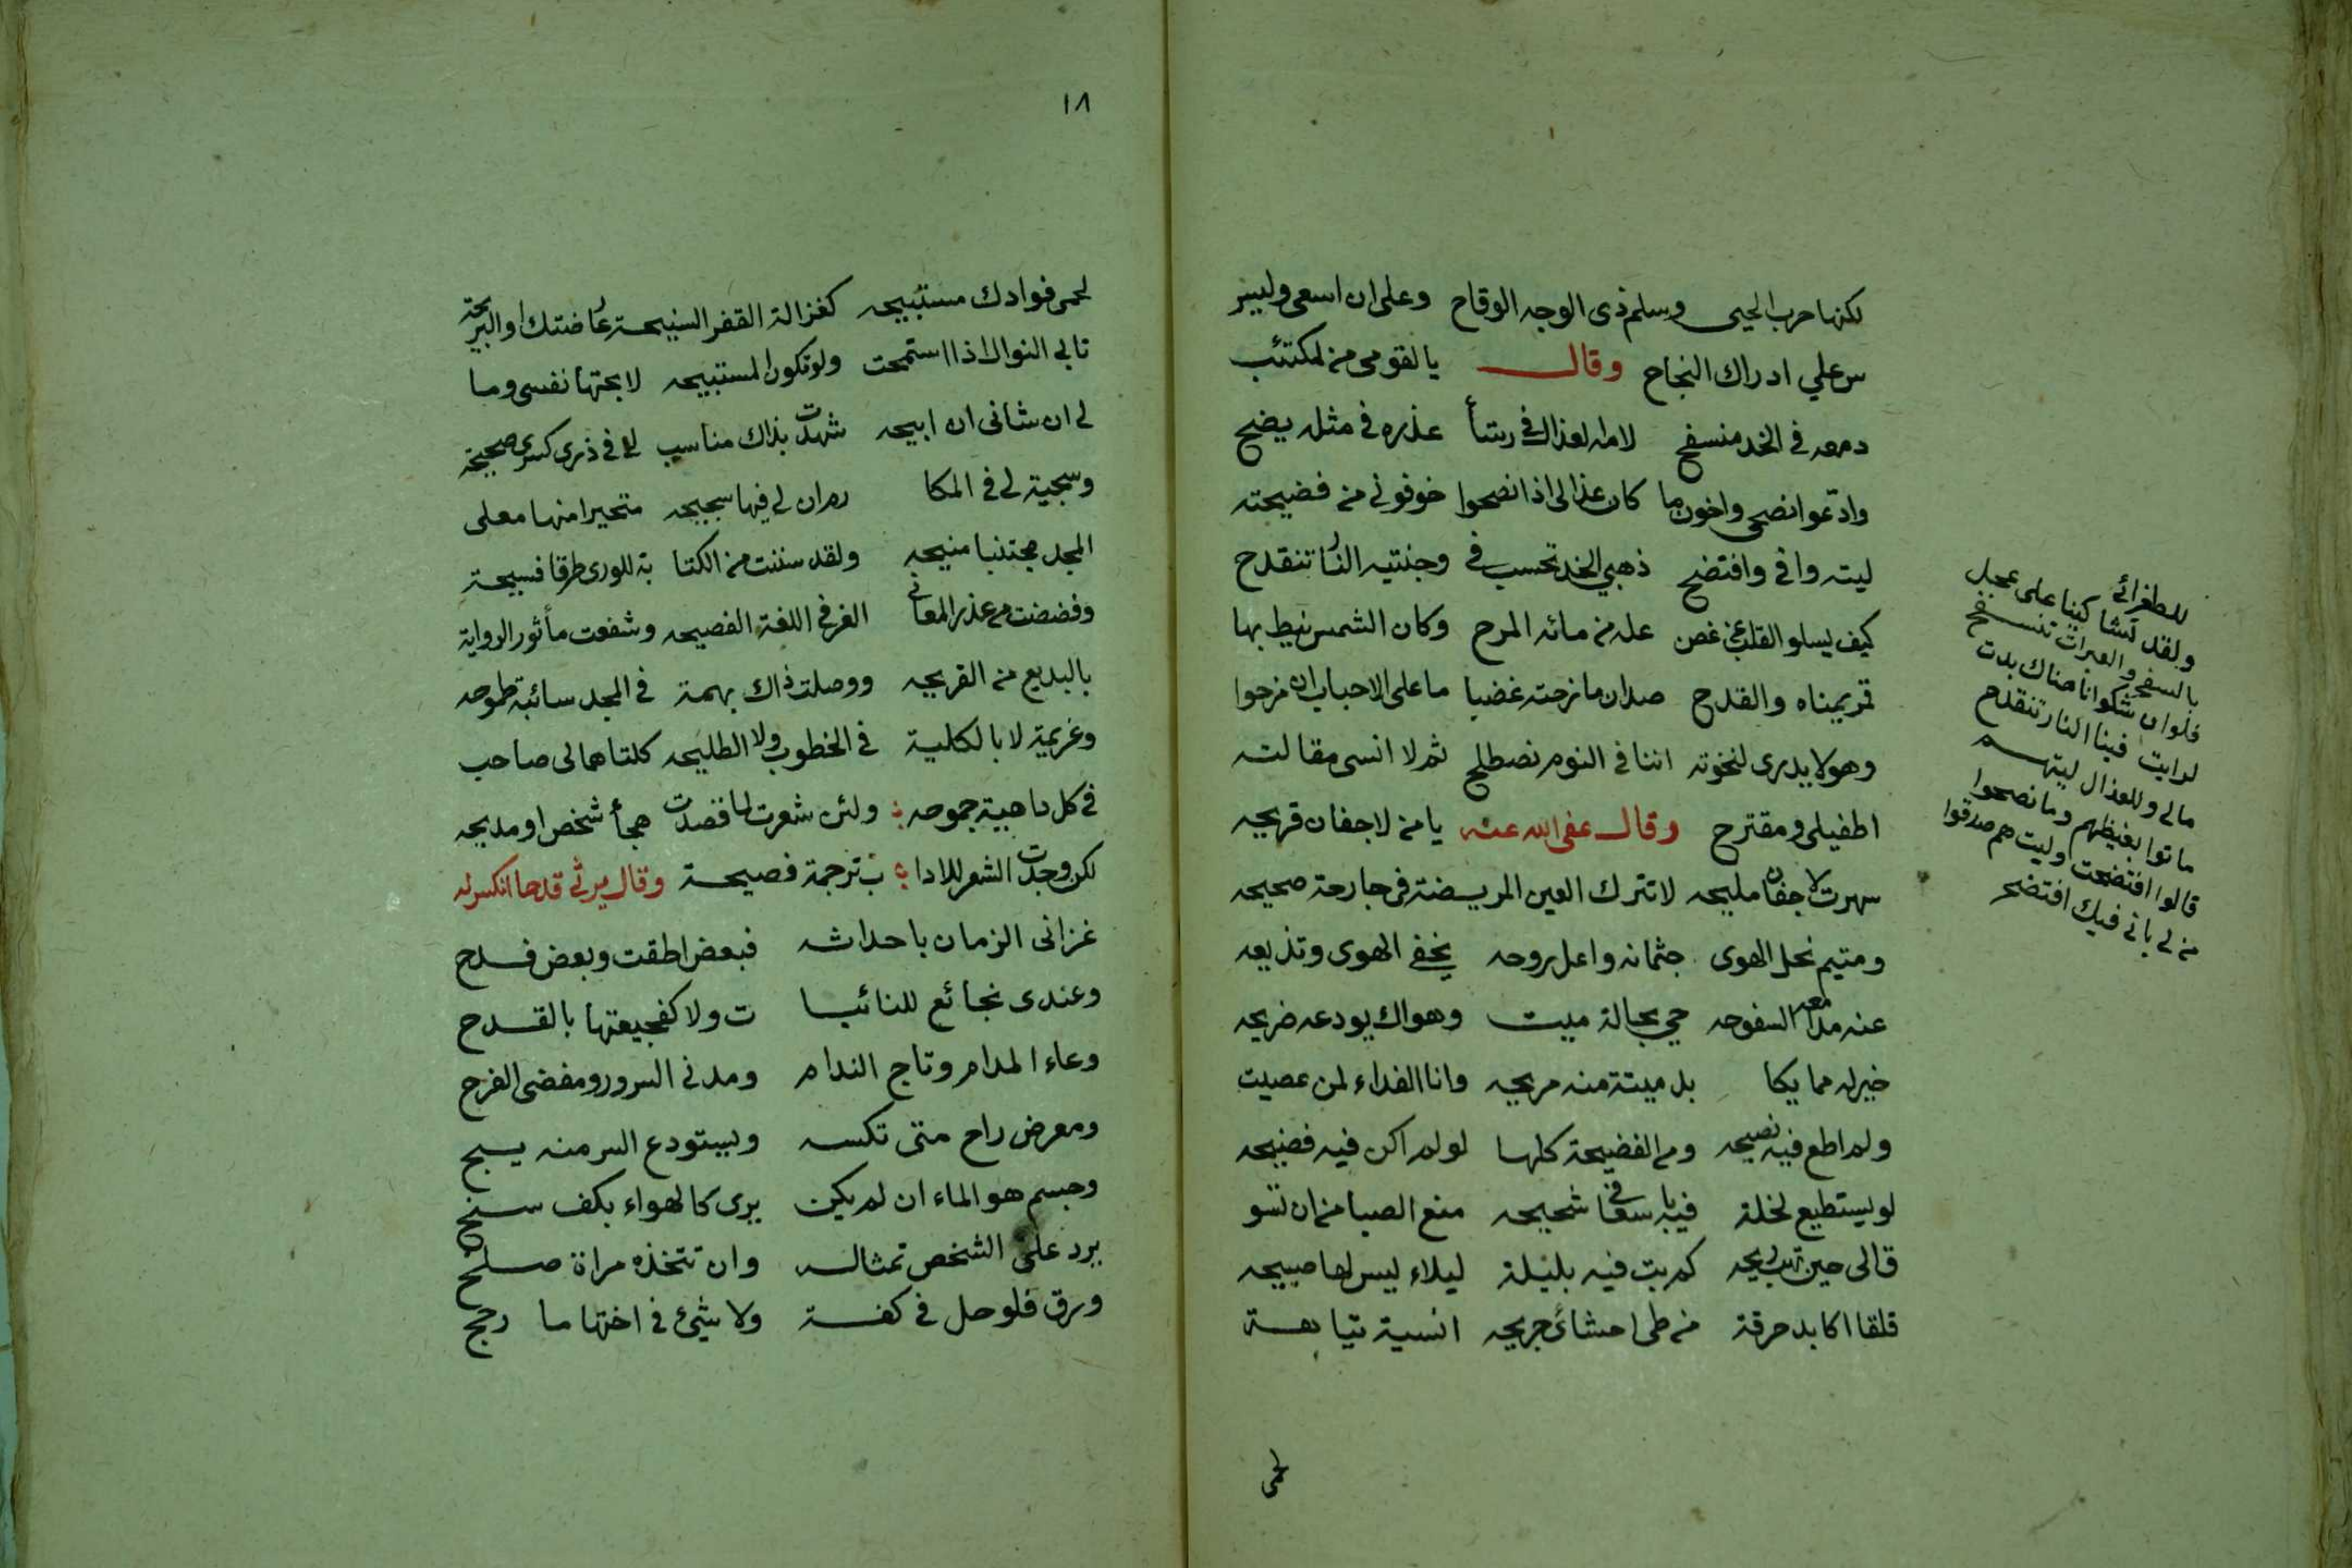 لكنها حرب الحيي وسلم ذى الوجه الوقاح وعلى ان اسعى وليس
س علي ادراك النجاح وقال يا لقومى من لمكتئب
دمعه فى الخد منسفح لامه العذال فى رشأ عذره فى مثله يضح
وادعوا نصحى واخون ما كان عذالى اذا نصحوا خوفونى من فضيحته
ليته وافى وافتضح ذهبي الخد تحسب فى وجنتيه النار تنقدح
كيف يسلو القلب عن غصن عله من مائه المرح وكان الشمس نيط بها
قمر يمناه والقدح صد ان مازحته غضبا ما على الاحباب ان مزحوا
وهو لا يدرى لنخوته اننا فى النوم نصطلح ثم لا انسى مقالته
اطفيلى ومقترح وقال عفى الله عنه يا من لاجفان قريحه
سهرت لاجفان مليحه لا تترك العين المريضة فى جارحة صحيحه
ومتيم نحل الهوى جثمانه واعل روحه يخفى الهوى وتذيعه
عنه مدامعه السفوحه حي بحالة ميت وهواك يودعه ضريحه
خير له مما يكا بد ميتة منه مريحه وانا الفداء لمن عصيت
ولم اطع فيه نصيحه وم الفضيحة كلها لو لم اكن فيه فضيحه
لو يستطيع لخلة فيه باسعافى شحيحه منع الصبا من ان تسو
قالى حين تهب ريحه كم بت فيه بليلة ليلاء ليس لها صبيحه
قلقا اكابد حرقة من طى احشائ جريحه انسية تياهة
لحمى
للطغرائي
ولقد كنا على عجل
بالسفح والعبرات تنسفح
فلو ان شكوانا هناك بدت
لرايت فينا النار تنقدح
مالى وللعذال ليتهم
ماتوا بغيظهم وما نصحوا
قالوا افتضحت وليت هم صدقوا
من لى بانى فيك افتضح
١٨
لحمى فوادك مستبيحه كغزالة القفر السنيحة عارضتك او البريحة
تابى النوال اذا استمحت ولو تكون المستبيحه لابحتها نفسى وما
لى ان شانى ان ابيحه شهدت بذاك مناسب لى فى ذرى كسرى صحيحة
وسجية لى فى المكا رم ان لى فيها سجيحه متحيرا منها معلى
المجد مجتنبا منيحه ولقد سننت من الكتا بة للورى طرقا فسيحة
وفضضت من عذر المعانى الغر فى اللغة الفصيحه وشفعت مأثور الرواية
بالبديع من القريحه ووصلت ذاك بهمة فى المجد سائبة طموحه
وغريمة لا بالكلية فى الخطوب ولا الطليحه كلتاهما لى صاحب
فى كل داهية جموحه ولئن شعرت لما قصدت هجأ شخص او مديحه
لكن وجدت الشعر للادا ب ترجمة فصيحة وقال يرثى قدحا انكسر له
غزانى الزمان باحداثه فبعض اطقت وبعض فدح
وعندى نجائع للنائبا ت ولا كفجيعتها بالقدح
وعاء المدام وتاج الندام ومدنى السرور ومفضى الفرح
ومعرض راح متى تكسه ويستودع السر منه يبح
وجسم هو الماء ان لم يكن يرى كالهواء بكف سنح
يرد على الشخص تمثاله وان تتخذه مراة صلح
ورق فلو حل فى كفة ولا شيئ فى اختها ما رجح